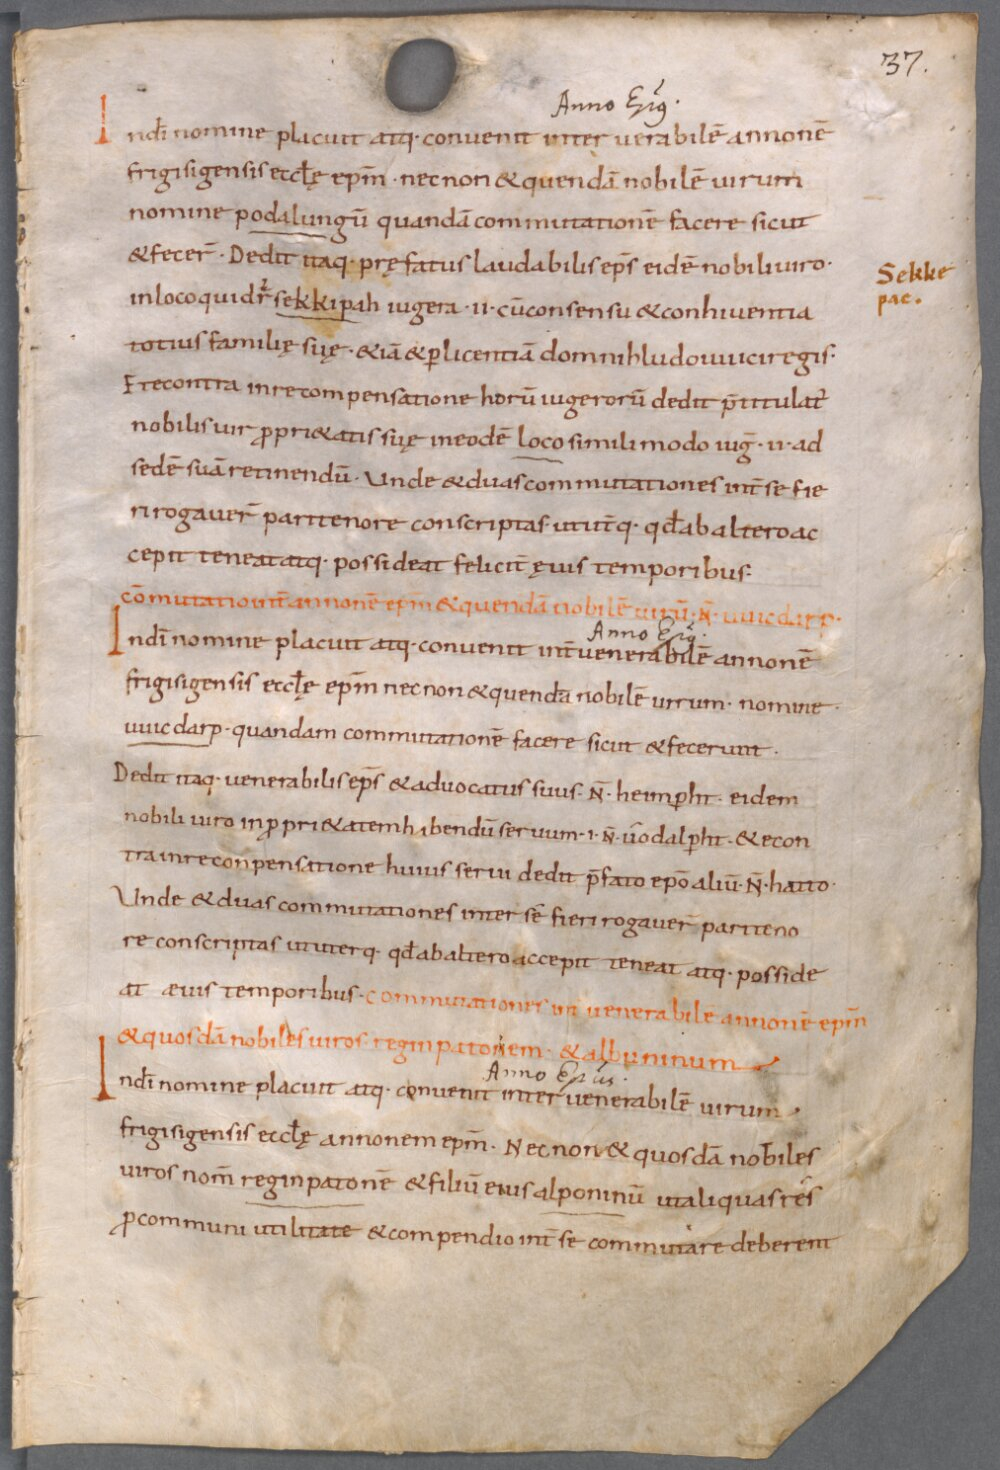 37.
Anno Epūs.
Indī nomine placuit atq· convenit inter verabilē annonē
frigisigensis eccłę epm̄ · necnon & quendā nobilē uirum
nomine podalungū quandā commutationē facere sicut
& fecer̄ · Dedit itaq· pręfatus laudabilis ep̄s eidē nobili uiro·
in loco qui dr̄ sekkipah iugera · II · cū consensu & conhiuentia
totius familię suę · & iā & ꝑ licentiā domni hludouuici regis·
E recontra in recompensatione horū iugerorū dedit p̄titulat̄
nobilis uir ꝓpri&atis suę in eodē loco simili modo iuḡ · II · ad
sedē suā retinendū · Unde & duas commutationes int̄ se fie
ri rogauer̄ pari tenore conscriptas· ut ut̄q· qd̄ ab altero ac
cepit teneat atq· possideat felicit̄ ęuis temporibus·
Sekke
pac.
cōmutatio int̄ annonē epm̄ & quendā nobilē uirū · N̄ · uuicdarp·
Anno Epūs.
Indī nomine placuit atq· convenit int̄ venerabilē annonē
frigisigensis eccłę epm̄ necnon & quendā nobilē uirum · nomine ·
uuicdarp · quandam commutationē facere sicut & fecerunt ·
Dedit itaq· venerabilis ep̄s & aduocatus suus · N̄ · heimꝑht · eidem
nobili uiro in ꝓpri&atem hibendū seruum · I · N̄ · uodalꝑht · & econ
tra in reconpensatione huius serui dedit p̄fato epō aliū · N̄ · hatto·
Unde & duas commutationes inter sē fieri rogauer̄ pari teno
re conscriptas ut uterq· qd̄ ab altero accepit teneat atq· posside
at æuis temporibus · commutationes int̄ venerabilē annonē epm̄
& quosdā nobiles uiros· reginpatonem · & albuninum
Anno Epūs.
Indī nomine placuit atq· convenit inter venerabilē uirum
frigisigensis eccłę annonem epm̄ · Necnon & quosdā nobiles
uiros nom̄ reginpatonē & filiū eius alponinū ut aliquas res
ꝓ communi utilitate & compendio int̄ se commutare deberent